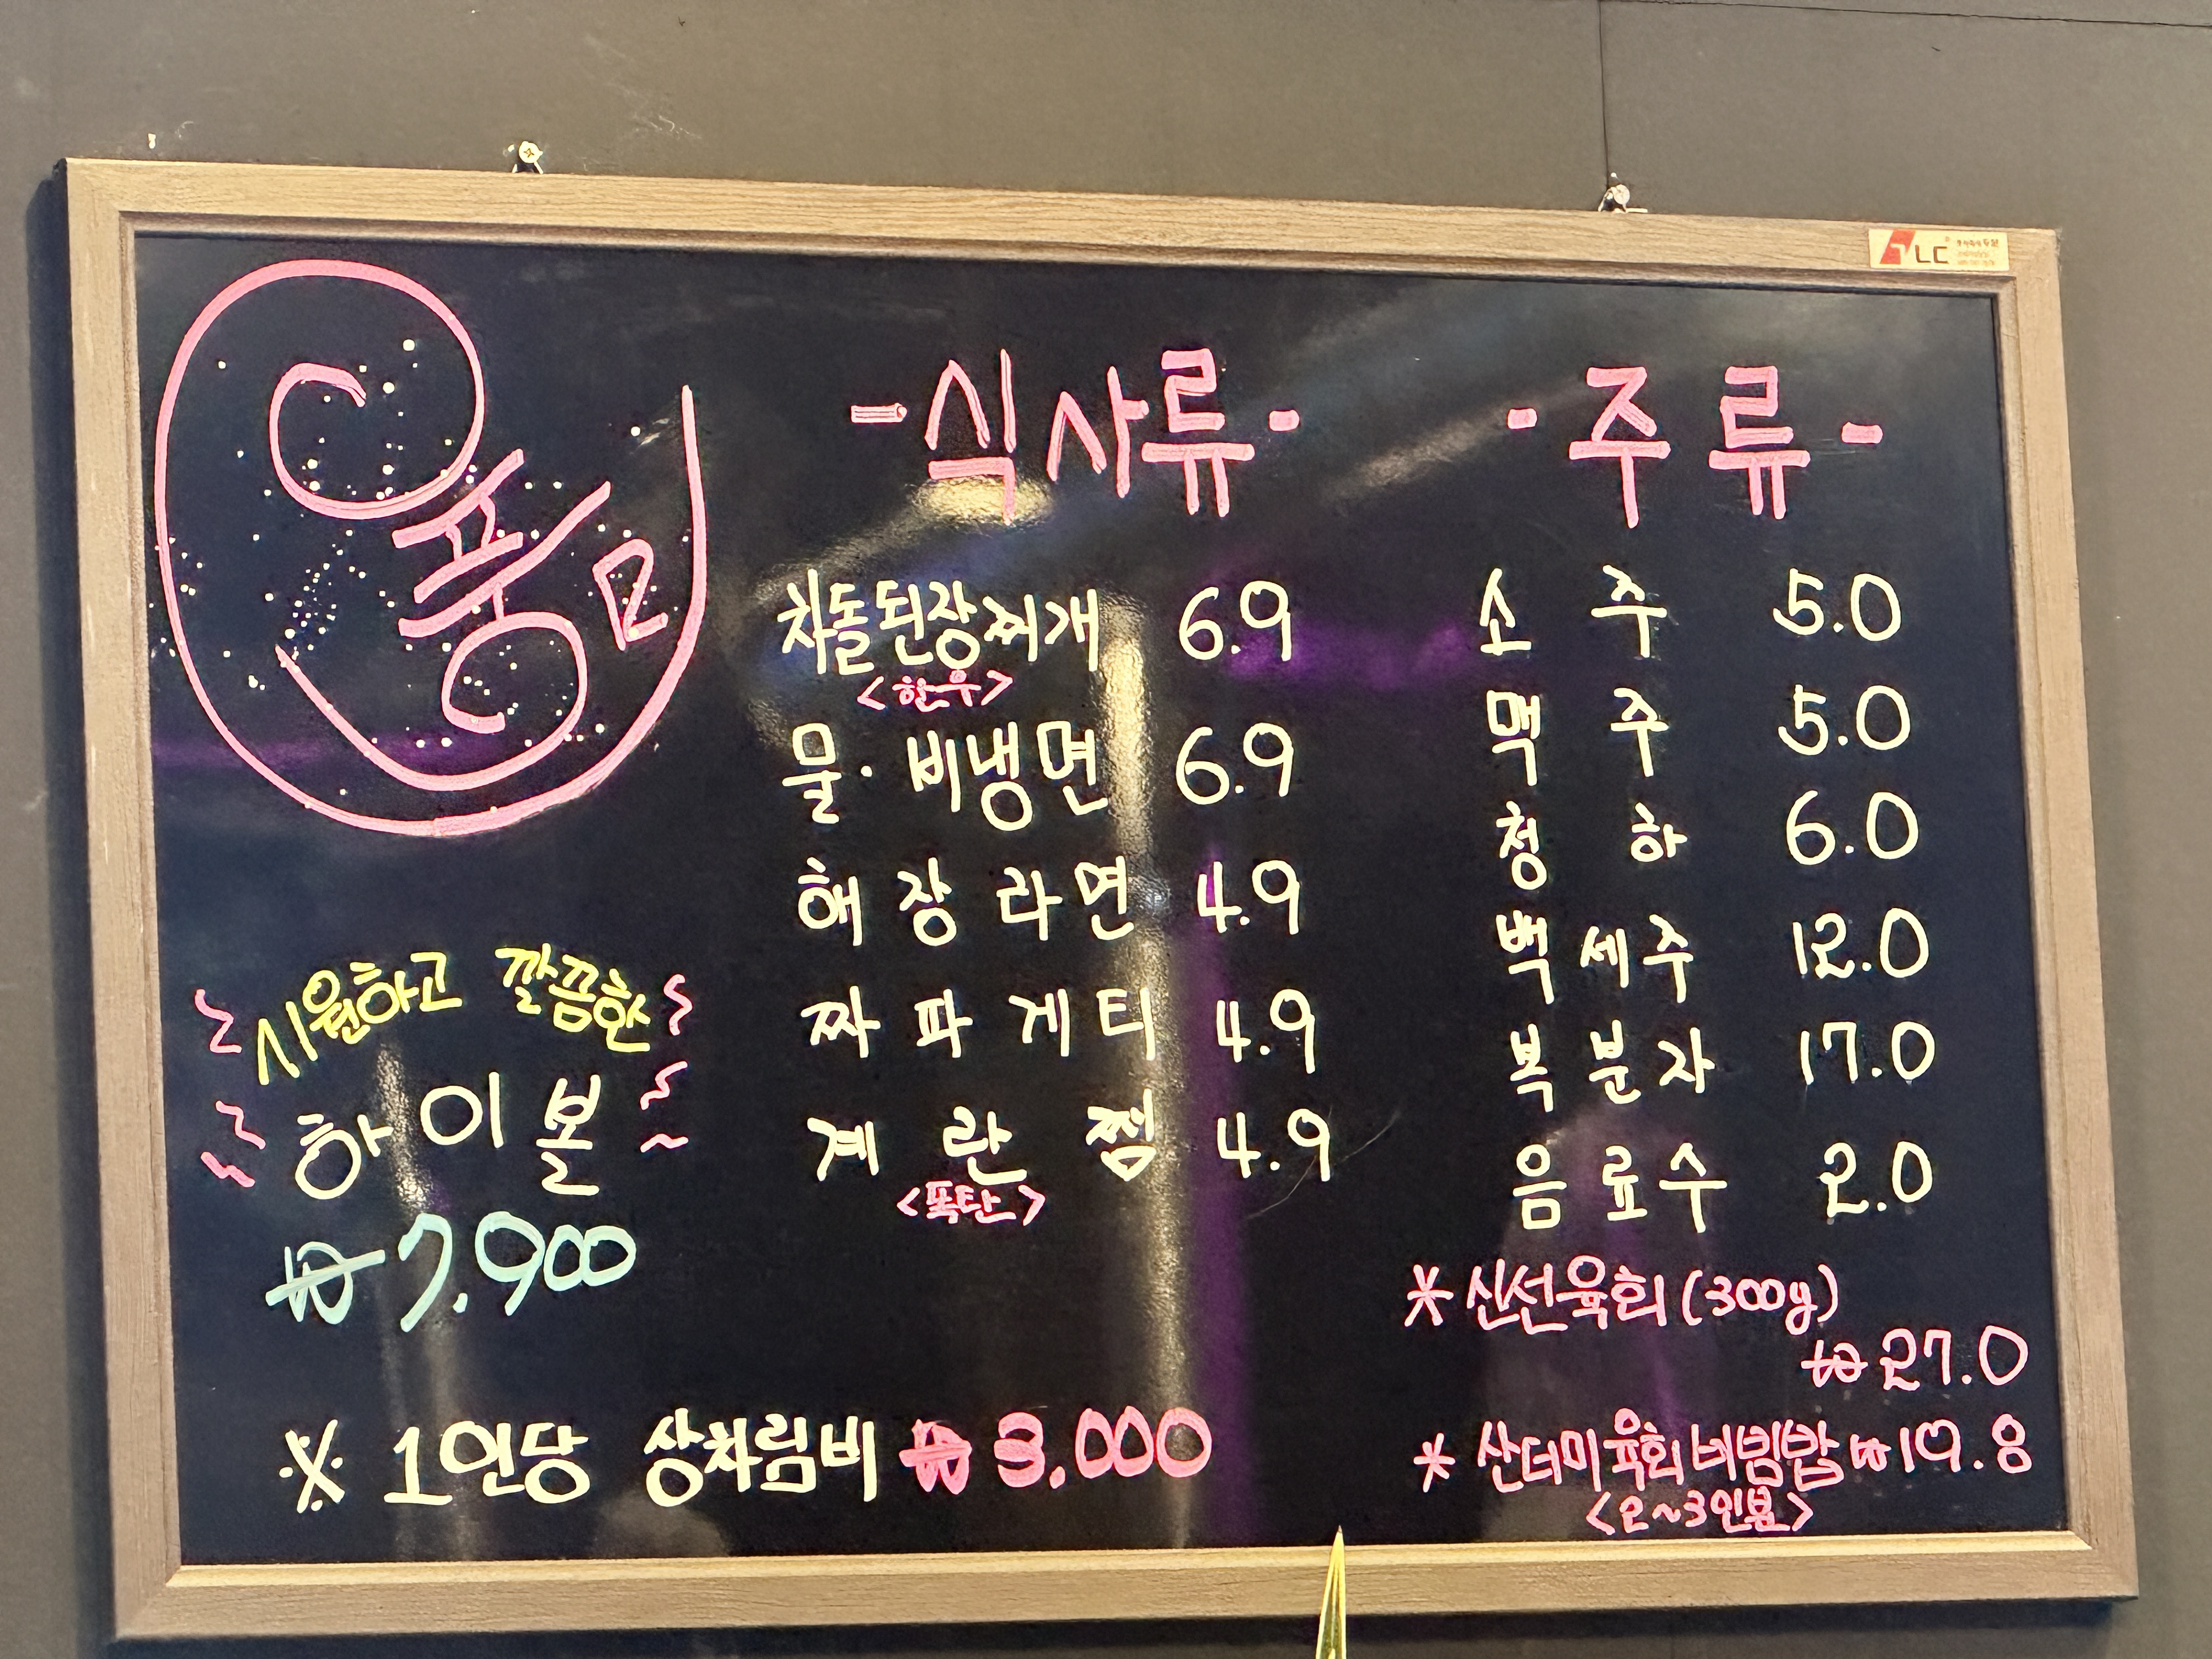 풍
-식사류-
차돌된장찌개 6.9
<한우>
물·비냉면 6.9
해장라면 4.9
짜파게티 4.9
계란찜 4.9
<폭탄>
-주류-
소주 5.0
맥주 5.0
청하 6.0
백세주 12.0
복분자 17.0
음료수 2.0
*신선육회(300g)
₩27.0
*산더미육회비빔밥 ₩19.8
<2~3인분>
시원하고 깔끔한
하이볼
₩7.900
※ 1인당 상차림비 ₩3.000
LC